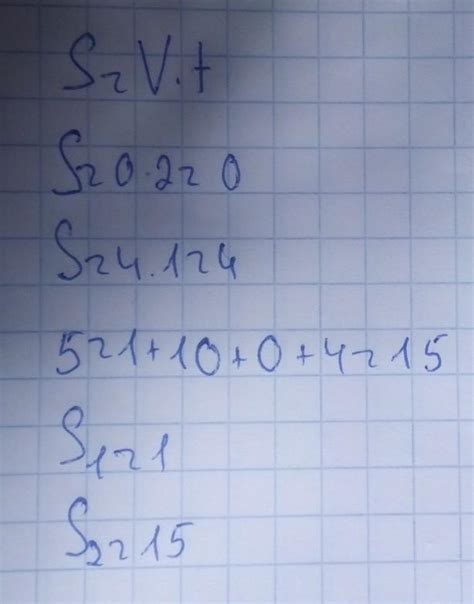 S=V·t
S=0·2=0
S=4·1=4
S=1+10+0+4=15
S₁=1
S₂=15